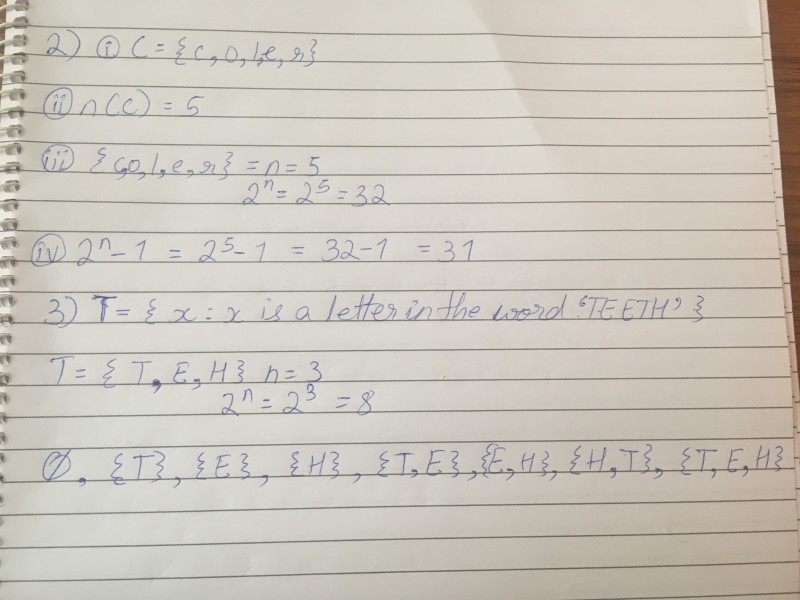 2) (i) C = {c, o, l, e, r}
(ii) n(C) = 5
(iii) {c, o, l, e, r} = n = 5
2ⁿ = 2⁵ = 32
(iv) 2ⁿ - 1 = 2⁵ - 1 = 32 - 1 = 31
3) T = { x : x is a letter in the word 'TEETH' }
T = { T, E, H } n = 3
2ⁿ = 2³ = 8
∅, {T}, {E}, {H}, {T, E}, {E, H}, {H, T}, {T, E, H}